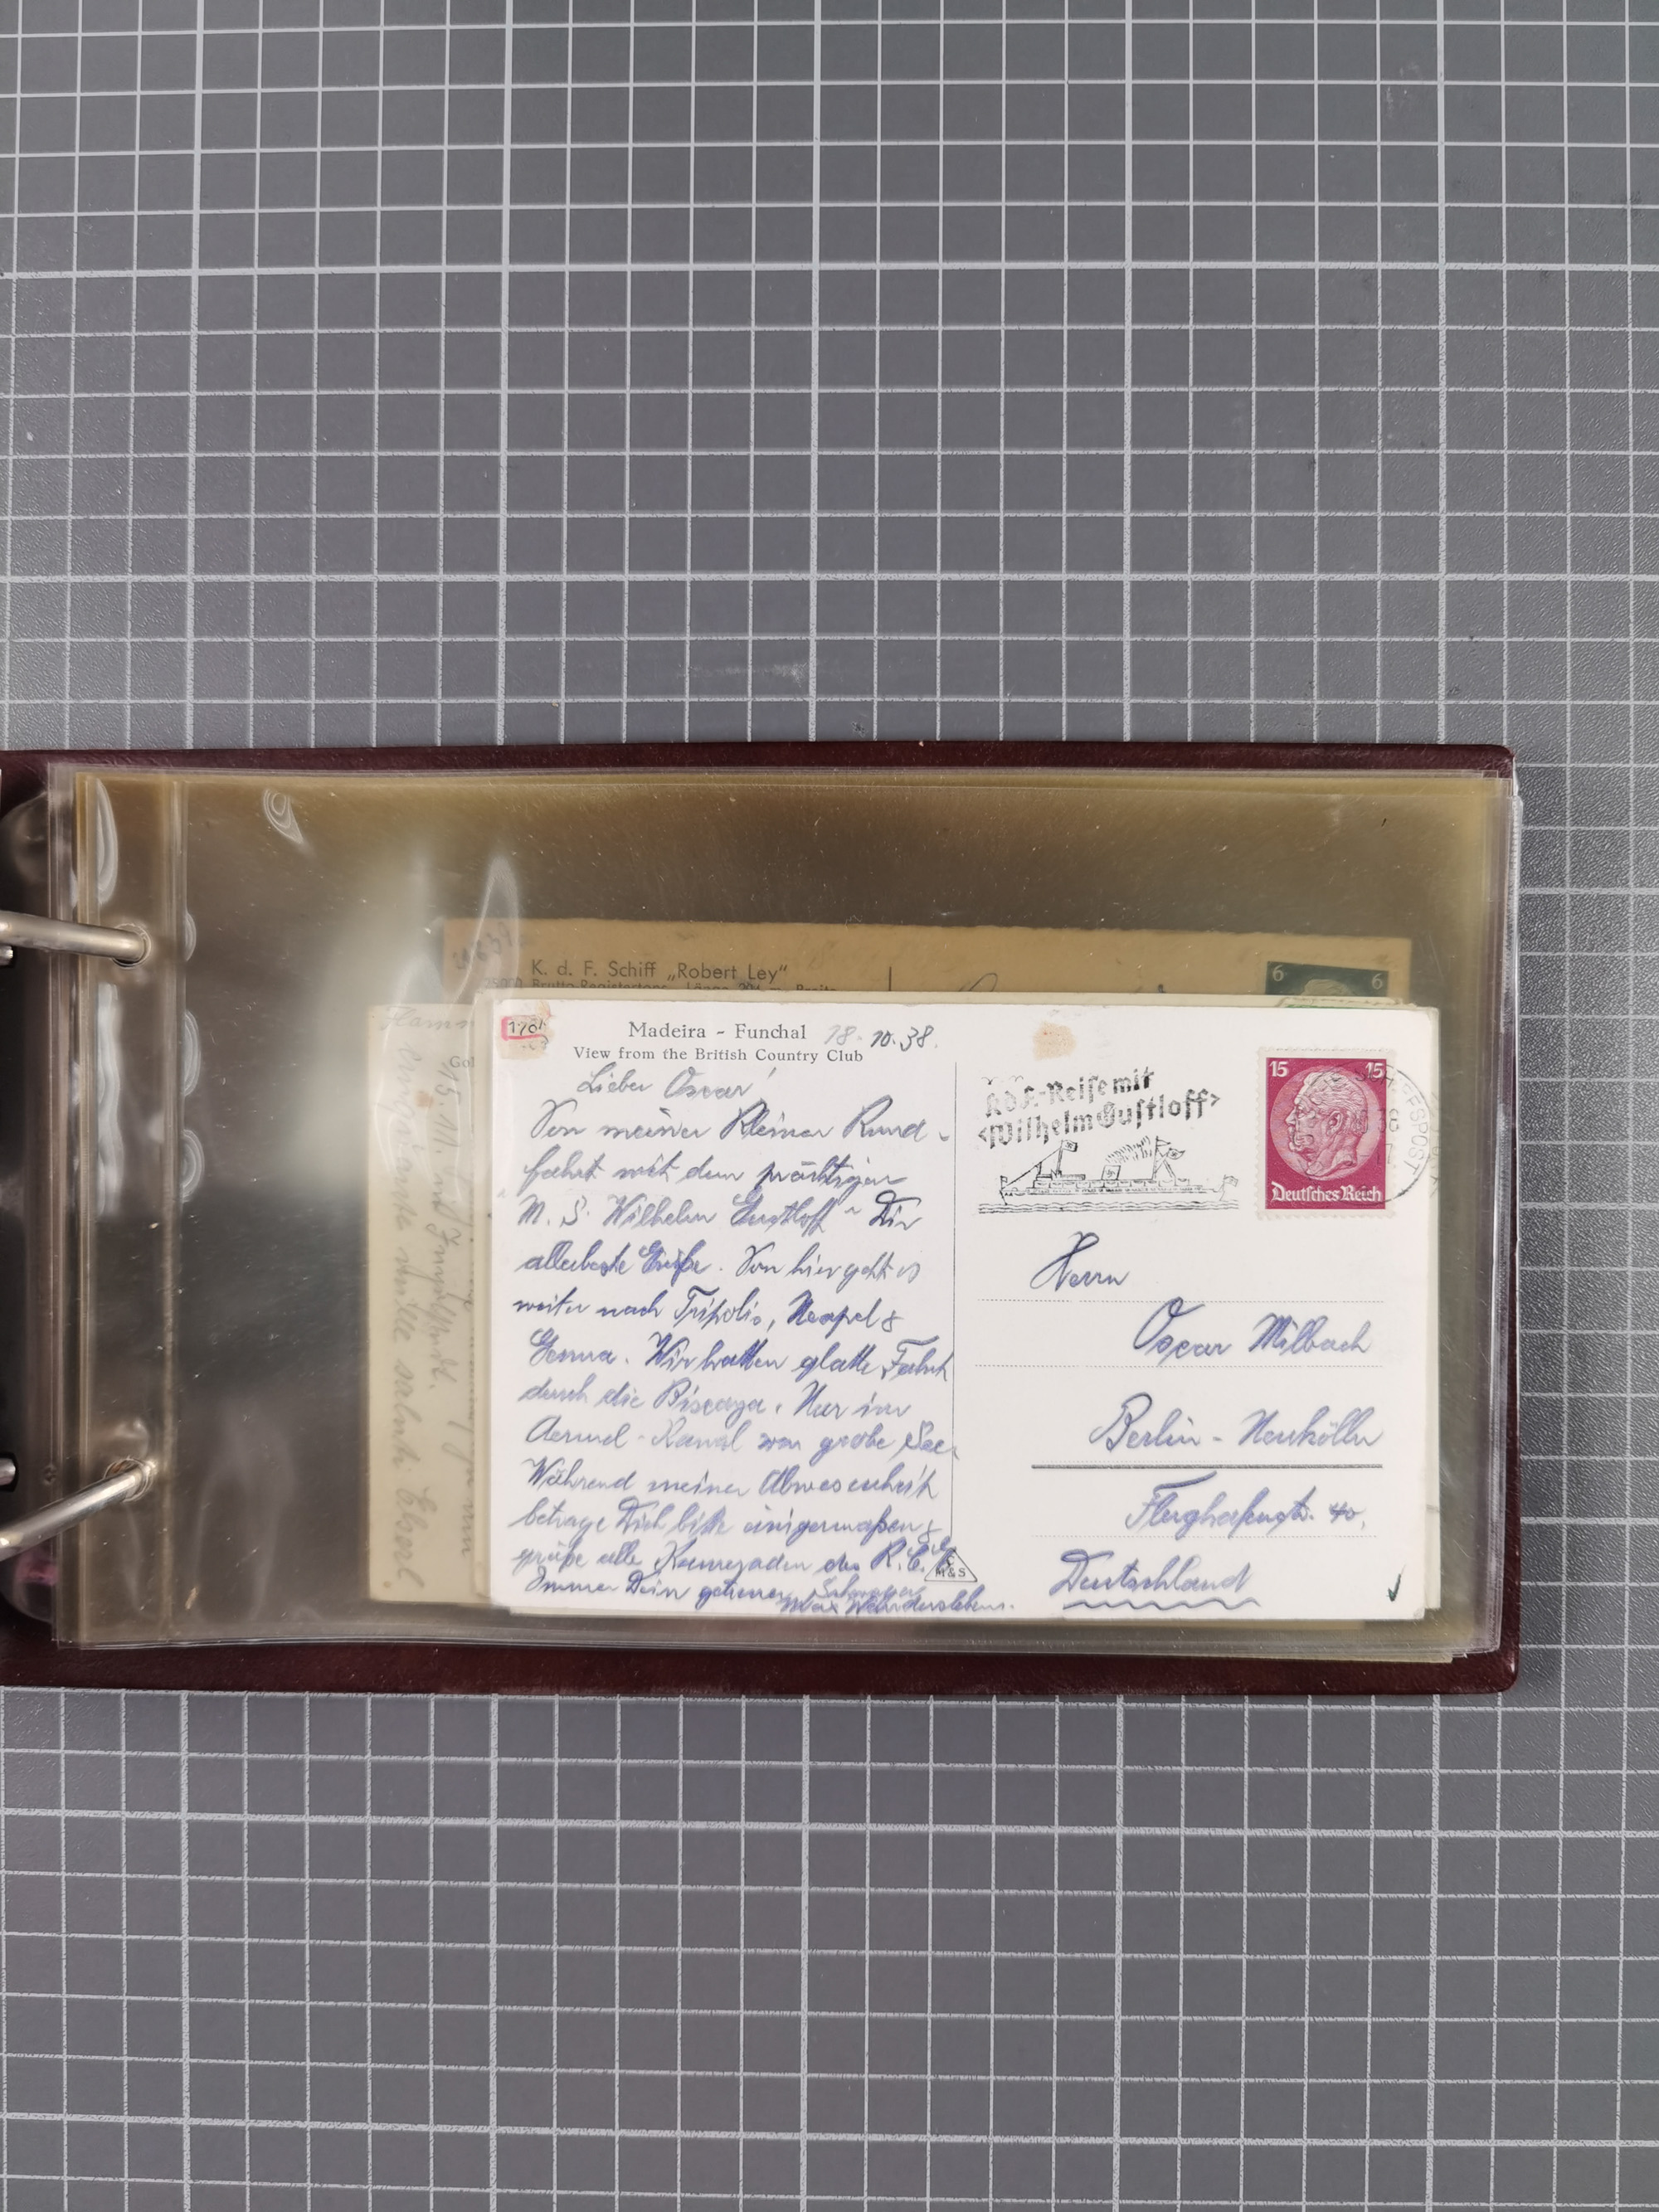 K. d. F. Schiff „Robert Ley"
Madeira - Funchal 18.10.38.
View from the British Country Club
Lieber Oscar!
Von meiner Kleinen Rund-
fahrt mit dem prächtigen
M. S. Wilhelm Gustloff" Dir
allerbeste Grüße. Von hier geht es
weiter nach Tripolis, Neapel &
Genua. Wir hatten glatte Fahrt
durch die Biscaya. Nur im
Aermel-Kanal war grobe See.
Während meiner Abwesenheit
betrage Dich bitte einigermaßen &
grüße alle Kameraden des
Immer Dein getreuer Schwager
Max
M&S
KdF.-Reise mit
<Wilhelm Gustloff>
15 15
Deutsches Reich
SCHIFFSPOST
Herrn
Oscar Milbach
Berlin - Neukölln
Flughafenstr. 40,
Deutschland
6 6